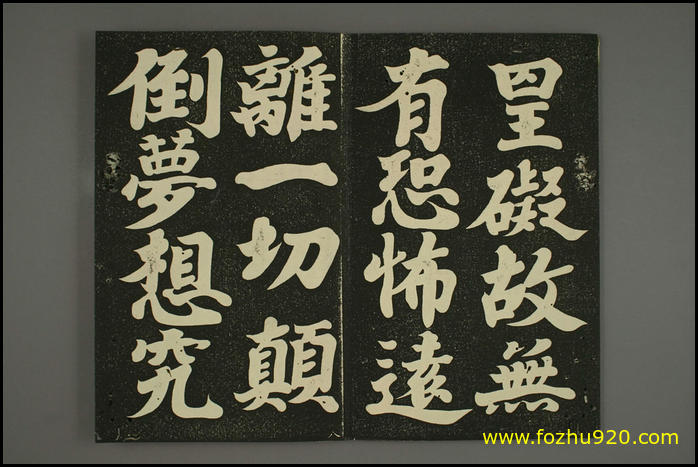 罣礙故無
有恐怖遠
離一切顛
倒夢想究
www.fozhu920.com